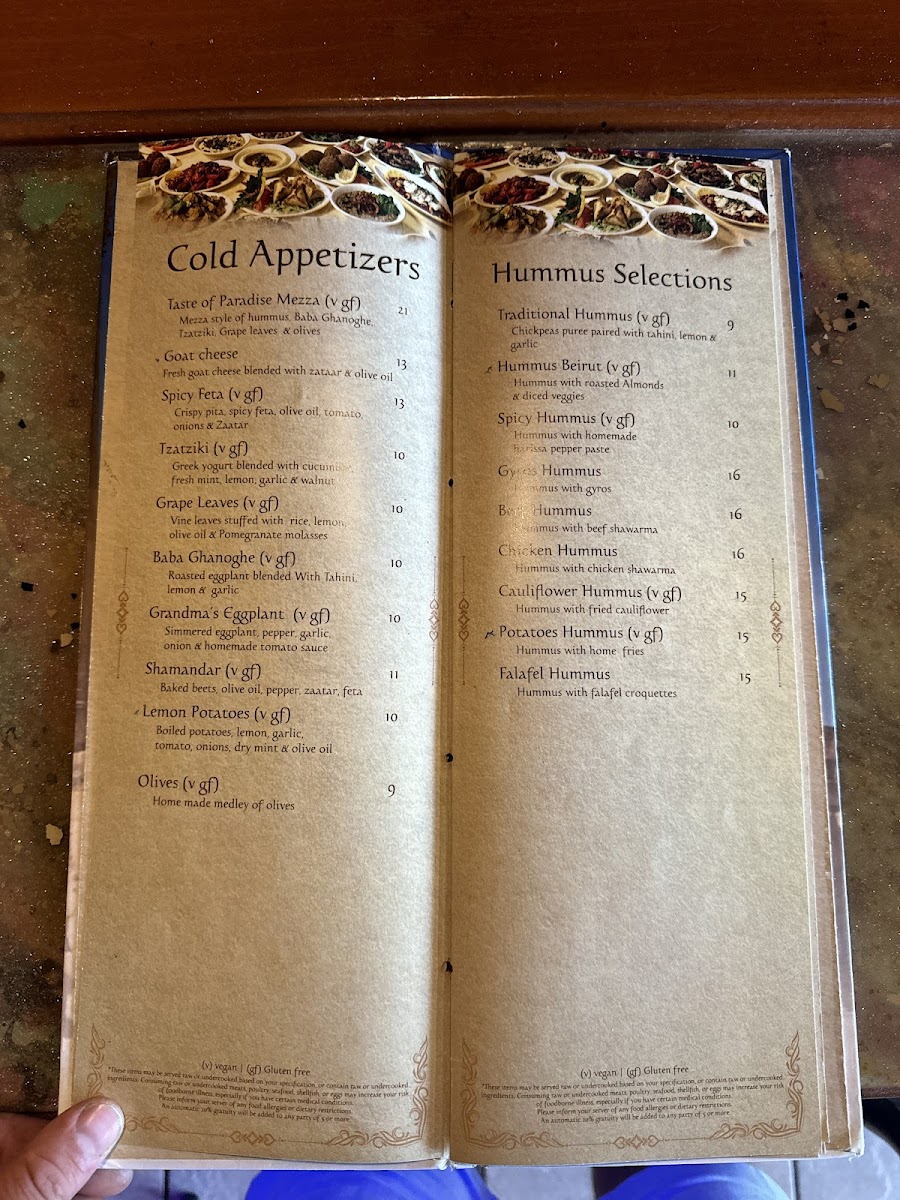 Cold Appetizers
Taste of Paradise Mezza (v gf) 21
Mezza style of hummus, Baba Ghanoghe,
Tzatziki, Grape leaves & olives
Goat cheese 13
Fresh goat cheese blended with zataar & olive oil
Spicy Feta (v gf) 13
Crispy pita, spicy feta, olive oil, tomato,
onions & Zaatar
Tzatziki (v gf) 10
Greek yogurt blended with
fresh mint, lemon, garlic & walnut
Grape Leaves (v gf) 10
Vine leaves stuffed with rice, lemon,
olive oil & Pomegranate molasses
Baba Ghanoghe (v gf) 10
Roasted eggplant blended With Tahini,
lemon & garlic
Grandma's Eggplant (v gf) 10
Simmered eggplant, pepper, garlic,
onion & homemade tomato sauce
Shamandar (v gf) 11
Baked beets, olive oil, pepper, zaatar, feta
Lemon Potatoes (v gf) 10
Boiled potatoes, lemon, garlic,
tomato, onions, dry mint & olive oil
Olives (v gf) 9
Home made medley of olives
(v) vegan | (gf) Gluten free
*These items may be served raw or undercooked based on your specification, or contain raw or undercooked
ingredients. Consuming raw or undercooked meats, poultry, seafood, shellfish, or eggs may increase your risk
of foodborne illness, especially if you have certain medical conditions.
Please inform your server of any food allergies or dietary restrictions.
An automatic 20% gratuity will be added to any party of 5 or more.
Hummus Selections
Traditional Hummus (v gf) 9
Chickpeas puree paired with tahini, lemon &
garlic
Hummus Beirut (v gf) 11
Hummus with roasted Almonds
& diced veggies
Spicy Hummus (v gf) 10
Hummus with homemade
harissa pepper paste
Gyros Hummus 16
Hummus with gyros
Beef Hummus 16
Hummus with beef shawarma
Chicken Hummus 16
Hummus with chicken shawarma
Cauliflower Hummus (v gf) 15
Hummus with fried cauliflower
Potatoes Hummus (v gf) 15
Hummus with home fries
Falafel Hummus 15
Hummus with falafel croquettes
(v) vegan | (gf) Gluten free
*These items may be served raw or undercooked based on your specification, or contain raw or undercooked
ingredients. Consuming raw or undercooked meats, poultry, seafood, shellfish, or eggs may increase your risk
of foodborne illness, especially if you have certain medical conditions.
Please inform your server of any food allergies or dietary restrictions.
An automatic 20% gratuity will be added to any party of 5 or more.